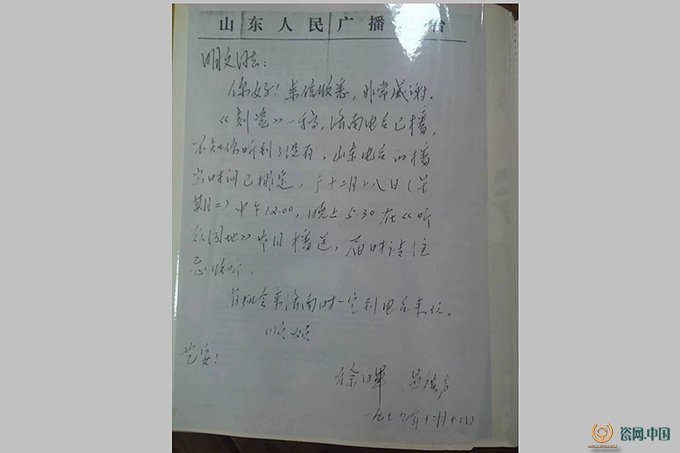 山东人民广播 台
明文同志:
你好!来信收悉,非常感谢。
《刻瓷》一稿,济南电台已播,
不知你听到了没有,山东电台的播
出时间已排定,于十二月十八日(星
期二)中午12.00,晚上5.30在《听
众园地》节目播送,届时请注
意收听。
有机会来济南时一定到电台来玩。
顺颂
艺安!
徐晖
一九七九年十二月十二日
瓷网.中国